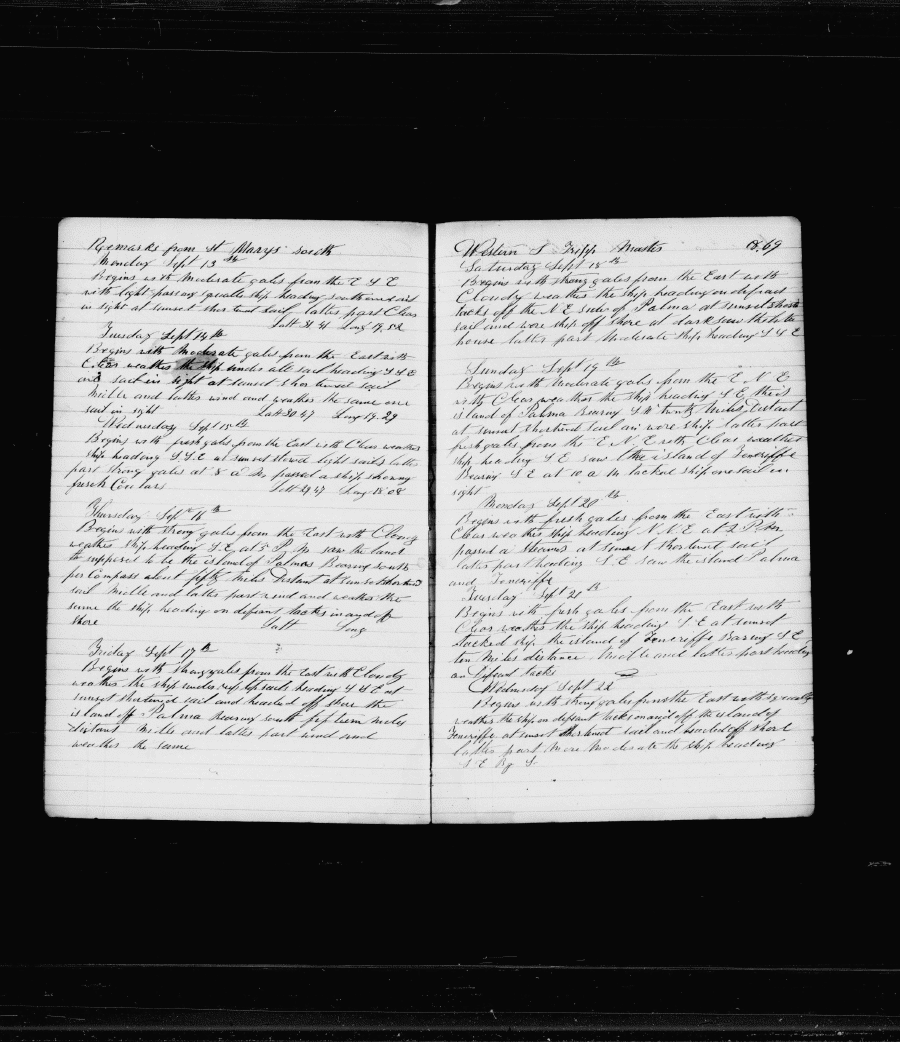 Remarks from St Marys south
Monday Sept 13th
Begins with Moderate gales from the E S E
with light passing squalls ship heading south
in sight at sunset shortened sail latter part Clear
Latt 31 41 Long 17,52
Tuesday Sept 14th
Begins with Moderate gales from the East with
Clear weather the ship under all sail heading S S E
one sail in sight at sunset shortened sail
Midle and latter wind and weather the same one
sail in sight Latt 30 47 Long 17-29
Wednesday Sept 15th
Begins with fresh gales from the East with Clear weather
ship heading S.S.E at sunset light sails latter
part strong gales at 8 a m passed a ship showing
french Coulars Latt 29 47 Long 18 08
Thursday Sept 16th
Begins with strong gales from the East with Cloudy
weather ship heading S.E. at 5 P M saw the land
supposed to be the island of Palmas Bearing south
per Compass about fifty Miles Distant at sunset shortened
sail Midle and latter part wind and weather the
same the ship heading on defiant tacks in and of
shore Latt Long
Friday Sept 17th
Begins with strong gales from the East with Cloudy
weather the ship under sails heading S S E at
sunset shortened sail and headed off shore the
island off Palma bearing south fifteen Miles
distant Midle and latter part wind and
weather the same
Western S Tripp Master 18,69
Saturday Sept 18th
Begins with strong gales from the East with
Cloudy weather the ship heading on defiant
tacks off the N E side of Palma at sunset short
sail and wore ship off shore at dark saw the
house latter part Moderate ship heading S S E
Sunday Sept 19th
Begins with Moderate gales from the E N E
with Clear weather the ship heading S E the
island of Palma Bearing S W Miles Distant
at sunset shortened sail an wore ship latter part
fresh gales from the E N E with Clear weather
ship heading S E saw the island of Teneriffe
Bearing S E at 10 a m tacked ship one sail in
sight
Monday Sept 20th
Begins with fresh gales from the East with
Clear weather ship heading N N E at 2 P M
passed a Steamer at sunset shortened sail
latter part heading S E saw the island Palma
and Teneriffe
Tuesday Sept 21st
Begins with fresh gales from the East with
Clear weather the ship heading S E at sunset
tacked ship the island of Teneriffe Baring S E
ten Miles distance Midle and latter part heading
on Defiant tacks
Wednesday Sept 22
Begins with strong gales from the East with squally
weather the ship on defiant tacks on and off the island of
Teneriffe at sunset shortened sail and headed off shore
latter part More Moderate the ship heading
S E By S.